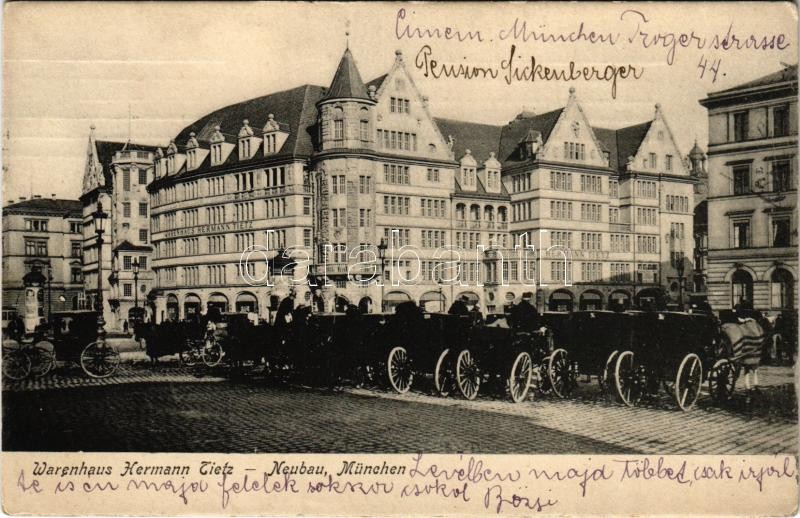 Cimem. München Trogerstrasse
44.
Pension Sickenberger
WARENHAUS HERMANN TIETZ
darabanth
Warenhaus Hermann Tietz – Neubau, München
Levélben majd többet, csak irjál,
te is én majd felelek sokszor csókol Bözsi